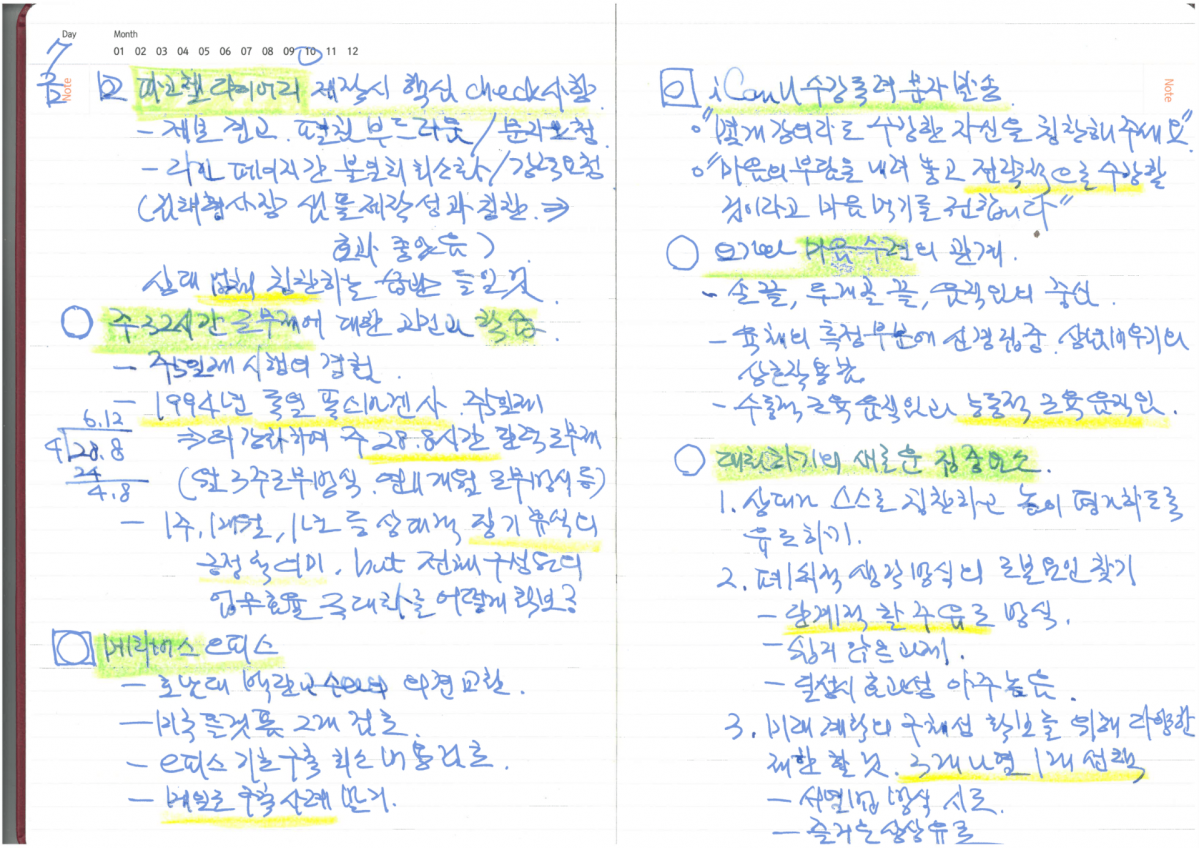 Day Month
01 02 03 04 05 06 07 08 09 10 11 12
7
Note
파고철 다이어리 제작시 핵심 check사항.
- 제본 견고. 펼침 부드러움 / 분리요청
- 라인 페이지간 불일치 최소화 / 강조요청
샘플제작성과 칭찬. ⇒
효과 좋았음)
상대 칭찬하는 습관 들일것
주 32시간 근무제에 대한 고민과 학습.
- 주5일제 시행의 경험.
- 1994년 독일 폭스바겐사. 주4일제
6.12
4 28.8
24
4.8
⇒ 더 강화하여 주 28.8시간 탄력근무제
(월 3주근무방식. 연 개월 근무방식 등)
- 1주, 1개월, 1년 등 상대적 장기 휴식의
긍정적 의미. but 전체 구성원의
업무효율 극대화를 어떻게 확보
메타버스 e피스
- 호남대 백란교수와의 의견교환.
- 미국 플랫폼 2개 검토.
- e피스 기초구축 최소비용 검토.
- 메일로 구축사례 받기.
Note
iCanU 수강독려 문자발송
"몇개 강의라도 수강한 자신을 칭찬해주세요"
"마음의 부담을 내려 놓고 전략적으로 수강할
것이라고 마음 먹기를 권합니다"
요가와 마음수련의 관계.
- 손끝, 무게골 끝, 움직임의 중심.
- 육체의 특정부분에 신경집중.
상호작용
- 수동적 근육 움직임과 능동적 근육움직임.
대화하기의 새로운 집중요소.
1. 상대가 스스로 칭찬하고 높이 평가하도록
유도하기.
2. 폐쇄적 생각방식의 근본요인 찾기
- 단계적 할 수 유도 방식.
- 쉽지 않은 과제.
- 달성시 효과성 아주 높음.
3. 미래 계획의 구체성 확보를 위해 다양한
제안 할것. 3개 나열 1개 선택
- 사열법 방식 시도.
- 즐거운 상상유도